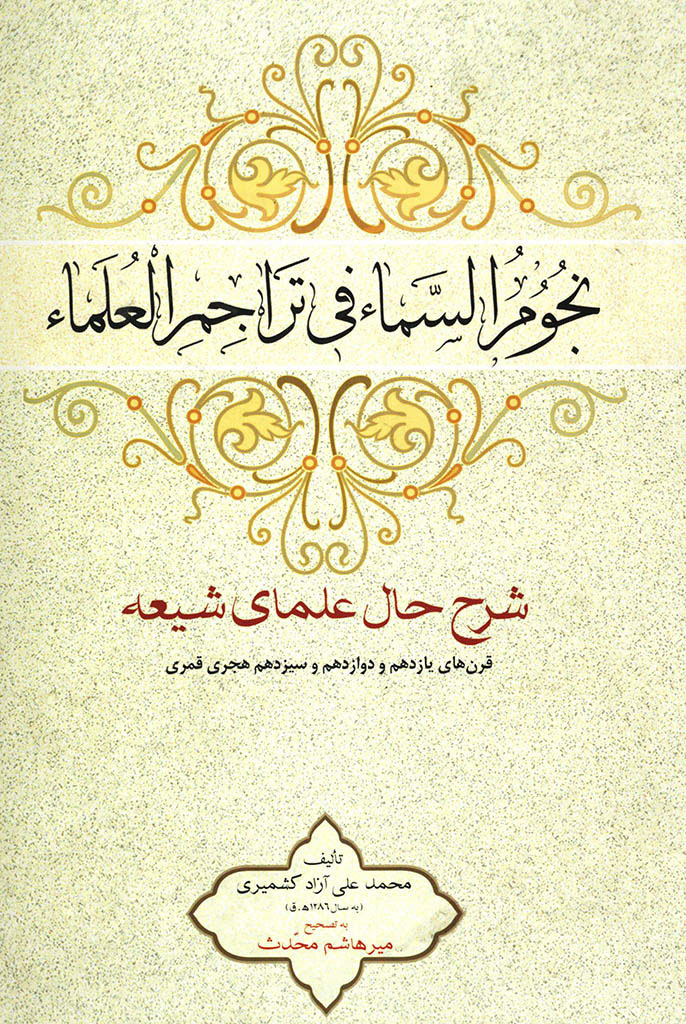 نُجُومُ السَّماء فی تَراجِمِ الْعُلَماء
شرح حال علمای شیعه
قرن‌های یازدهم و دوازدهم و سیزدهم هجری قمری
تألیف
محمد علی آزاد کشمیری
(به سال ۱۲۸۶ه‍.ق)
به تصحیح
میرهاشم محدّث